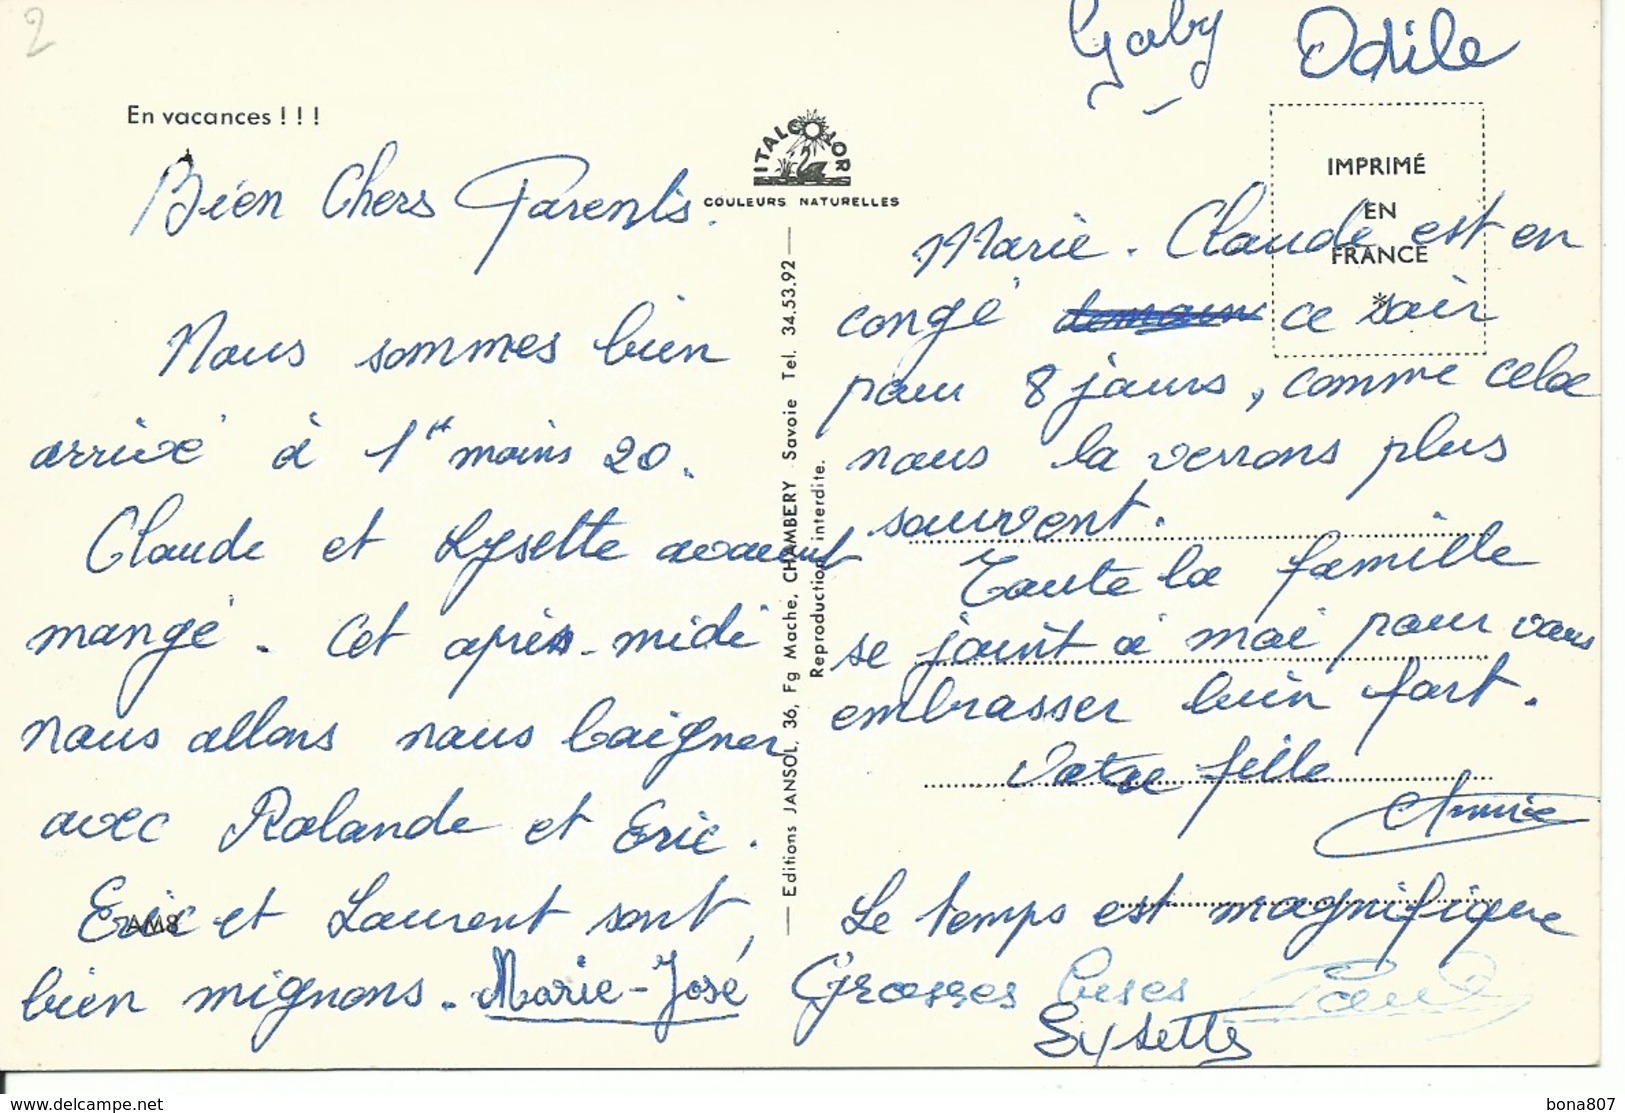 2
Gaby Odile
En vacances ! ! !
ITALCOLOR
COULEURS NATURELLES
IMPRIMÉ
EN
FRANCE
*
Bien Chers Parents.
Nous sommes bien
arrivé à 1H moins 20.
Claude et Lysette avaient
mangé. Cet après-midi
nous allons nous baigner
avec Rolande et Eric.
Eric et Laurent sont
bien mignons. Marie-José
AM8
Editions JANSOL, 36, Fg Mache, CHAMBERY - Savoie Tel. 34.53.92
Reproduction interdite.
Marie-Claude est en
congé demain ce soir
pour 8 jours, comme cela
nous la verrons plus
souvent.
Toute la famille
se joint à moi pour vous
embrasser bien fort.
Votre fille
Annie
Le temps est magnifique
Grosses bises Paul
Lysette
www.delcampe.net
bona807